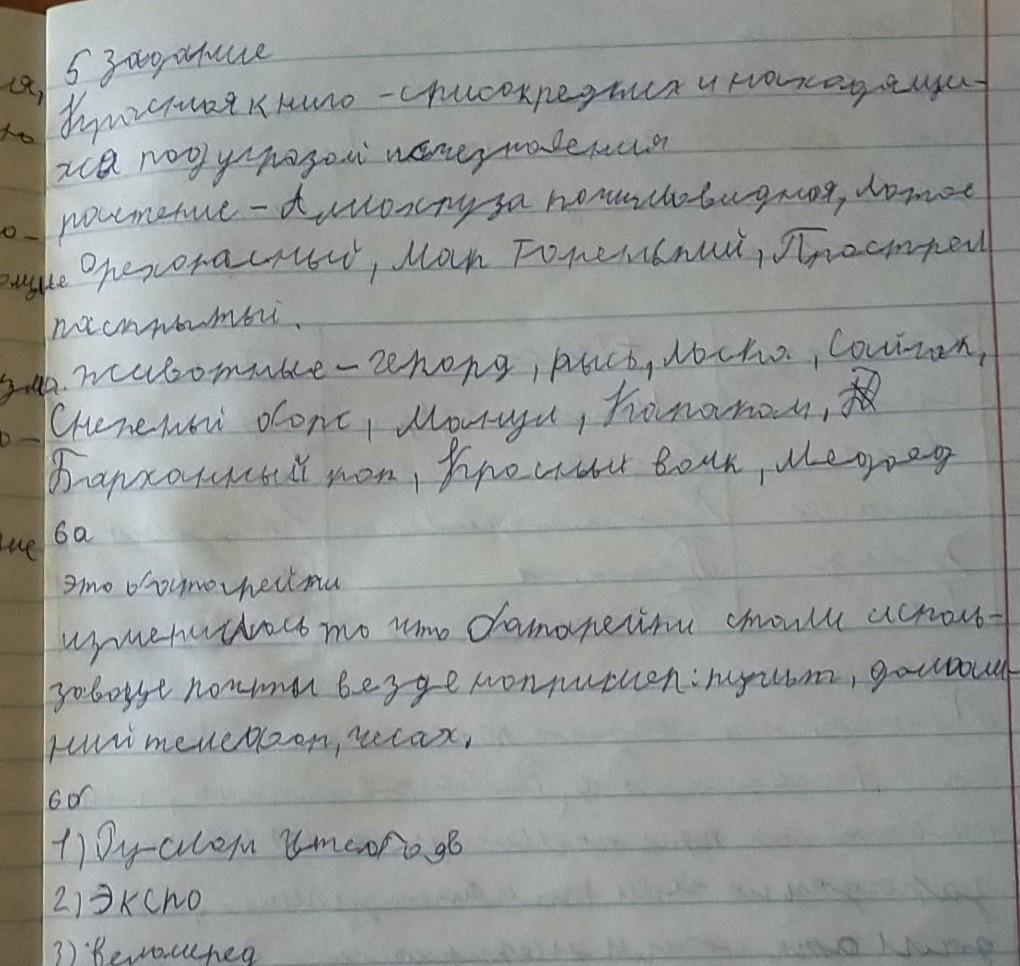 5 задание
Красная книга - список редких и находящи-
хся под угрозой исчезновения
растение - Аммохпуза почковидная, лотос
Орехоносный, Мак Горенький, Прострел
раскрытый.
животные - гепард, рысь, ласка, Сайгак,
Снежный барс, Манул, Каракал,
Барханный кот, Красный волк, Медоед
6а
это батарейки
изменилось то что батарейки стали исполь-
зоваце почты везде например: пульт, домаш-
ний телефон, часах.
6б
1) Руслан
2) Экспо
3) Веломеред